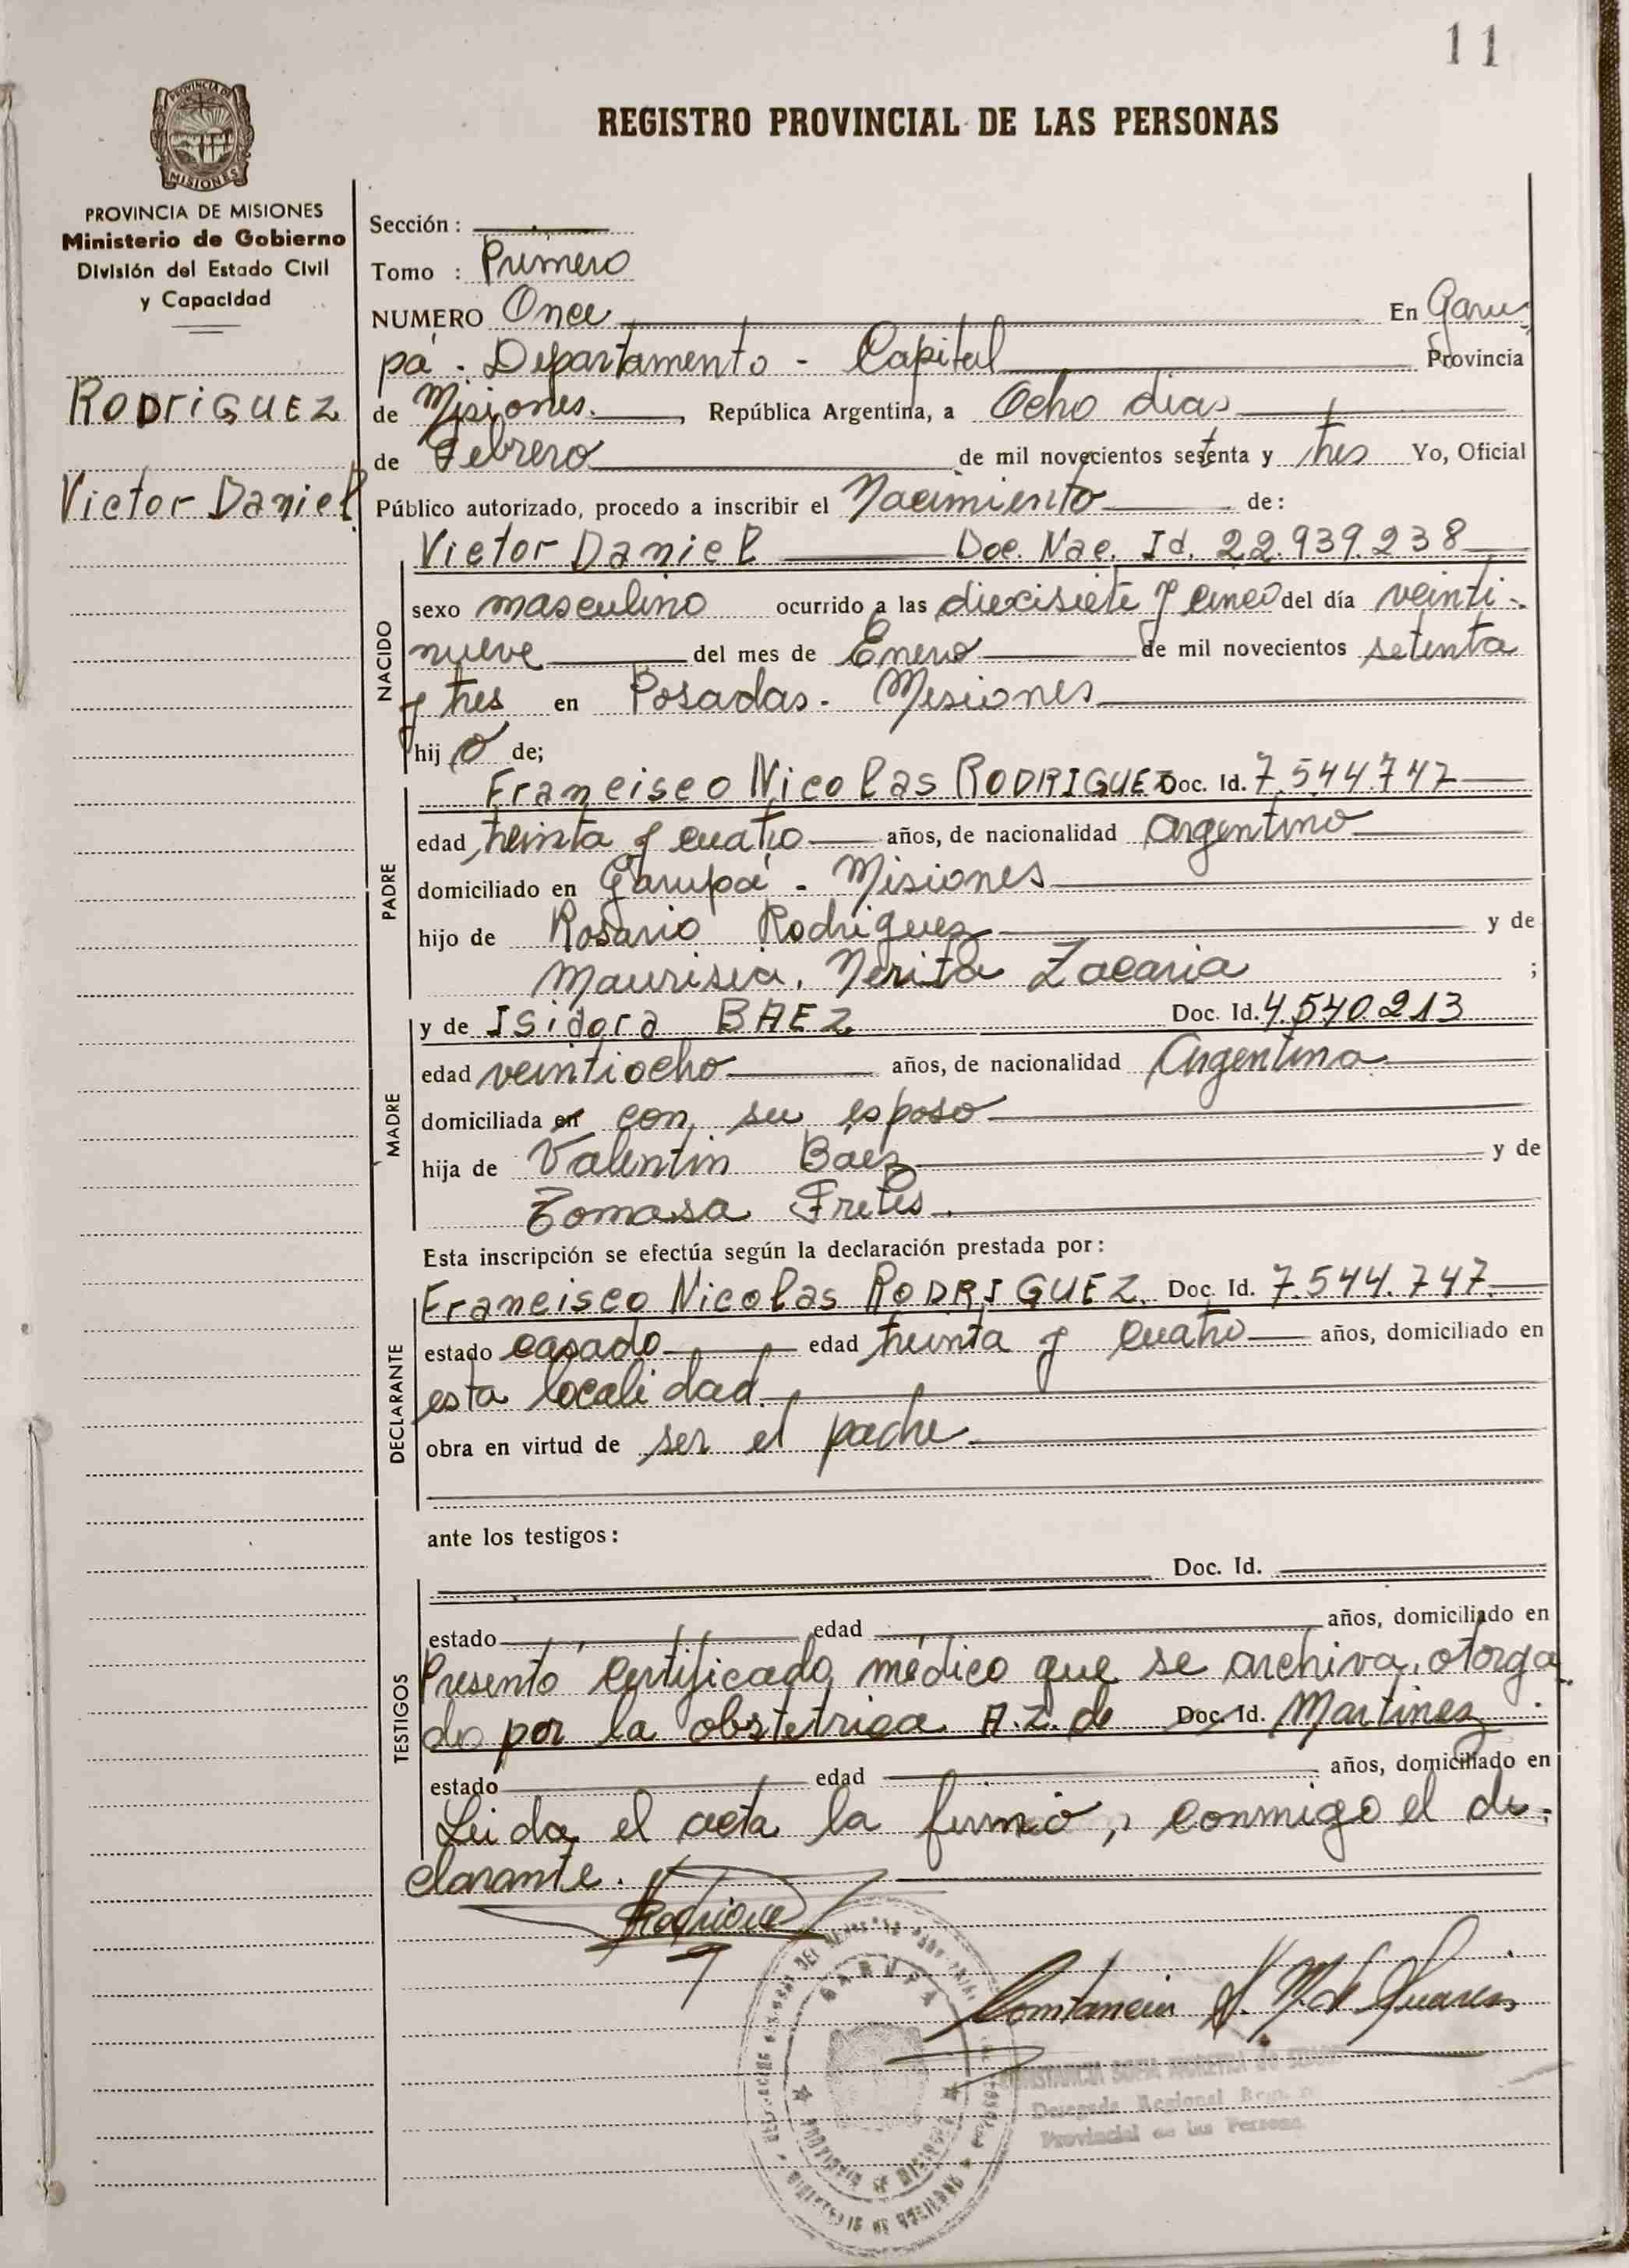 11
PROVINCIA DE
MISIONES
REGISTRO PROVINCIAL DE LAS PERSONAS
PROVINCIA DE MISIONES
Ministerio de Gobierno
División del Estado Civil
y Capacidad
RODRIGUEZ
Victor Daniel
Sección :
Tomo : Primero
NUMERO Once En Garu
pá - Departamento - Capital Provincia
de Misiones. , República Argentina, a Ocho dias
de Febrero de mil novecientos setenta y tres Yo, Oficial
Público autorizado, procedo a inscribir el Nacimiento de:
NACIDO
Victor Daniel Doc. Nac. Id. 22.939.238
sexo masculino ocurrido a las diecisiete y cinco del día veinti-
nueve del mes de Enero de mil novecientos setenta
y tres en Posadas - Misiones
hijo de;
PADRE
Francisco Nicolas RODRIGUEZ Doc. Id. 7.544.747
edad treinta y cuatro años, de nacionalidad argentino
domiciliado en Garupá - Misiones
hijo de Rosario Rodriguez y de
Maurisia, Nerita Zacaria ;
MADRE
y de Isidora BAEZ Doc. Id. 4.540.213
edad veintiocho años, de nacionalidad Argentina
domiciliada en con su esposo
hija de Valentin Baez y de
Tomasa Fretes.
Esta inscripción se efectúa según la declaración prestada por:
DECLARANTE
Francisco Nicolas RODRIGUEZ. Doc. Id. 7.544.747
estado casado edad treinta y cuatro años, domiciliado en
esta localidad.
obra en virtud de ser el padre
ante los testigos:
TESTIGOS
Doc. Id.
estado edad años, domiciliado en
Presentó certificado médico que se archiva, otorga
do por la obstetrica A.Z. de Doc. Id. Martinez
estado edad años, domiciliado en
Leida el acta la firmó, conmigo el de-
clarante.
Rodriguez
GARUPA
PROVINCIA DE MISIONES
Constancia S. M. de
Delegada Regional
Provincial de las Persona